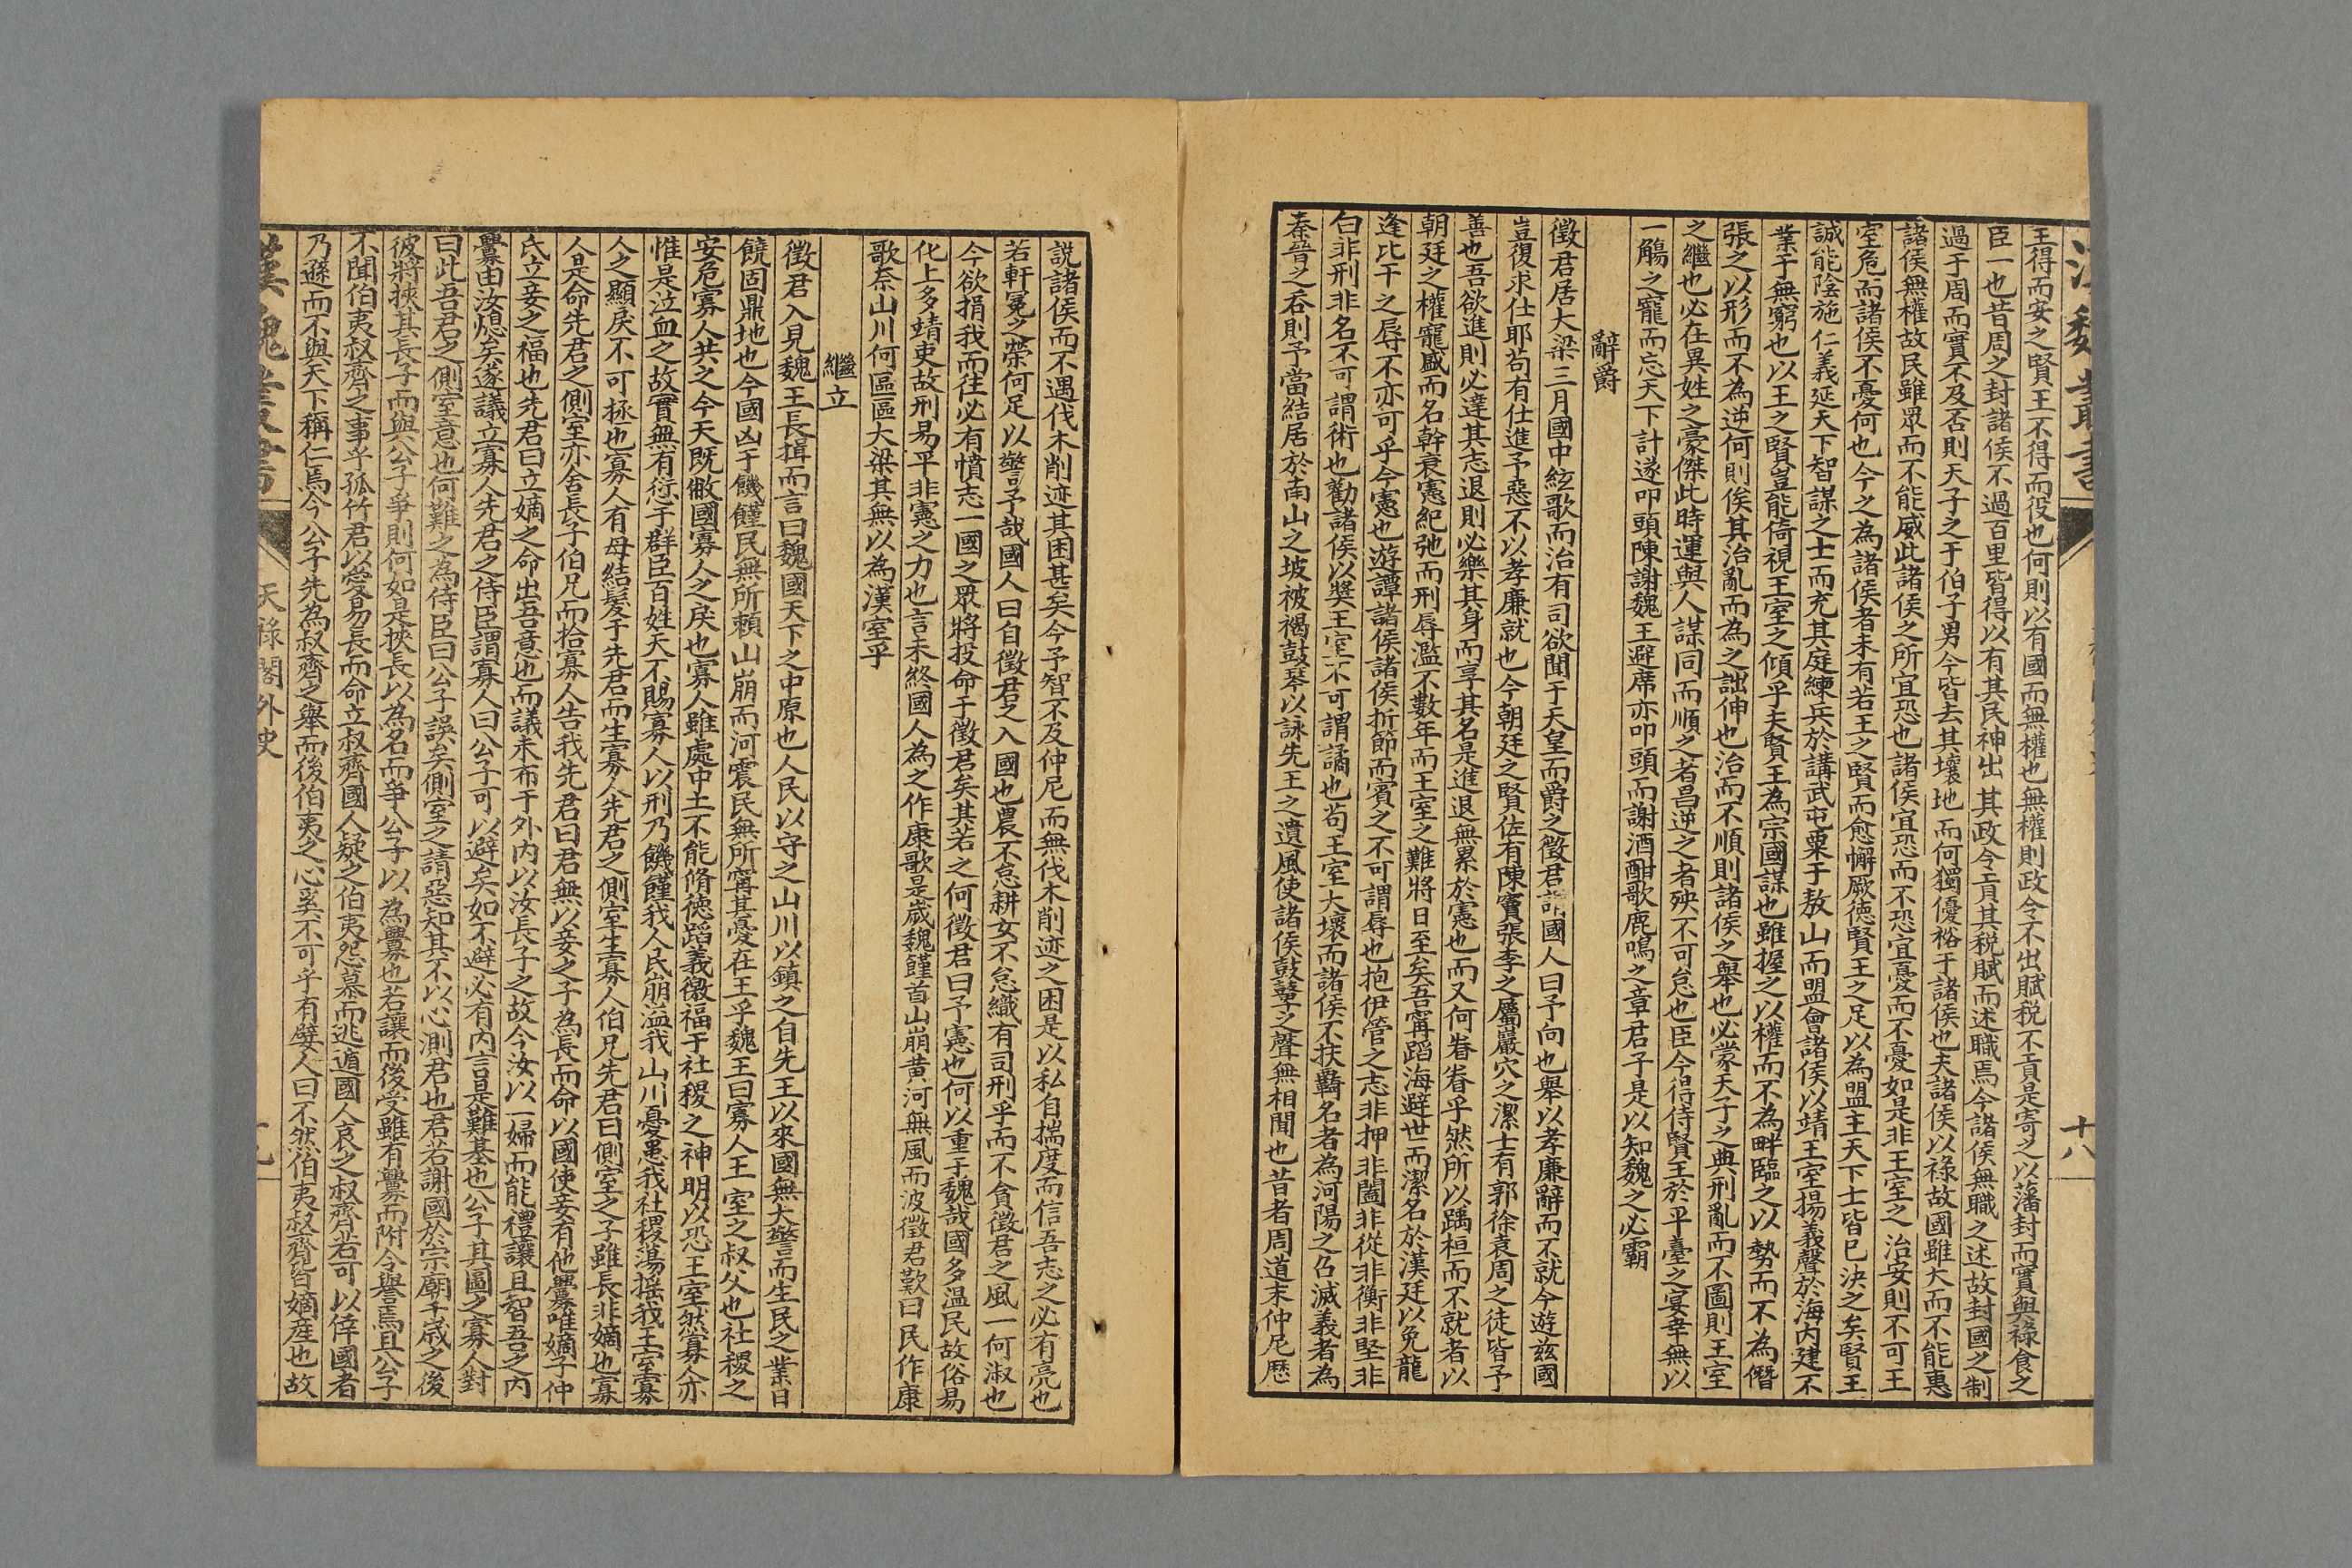 王得而安之賢王不得而役也何則以有國而無權也無權則政令不出賦税不貢是寄之以藩封而實與祿食之
臣一也昔周之封諸侯不過百里皆得以有其民神出其政令貢其税賦而述職焉今諸侯無職之述故封國之制
過于周而實不及否則天子之于伯子男今皆去其壤地而何獨優裕于諸侯也夫諸侯以祿故國雖大而不能惠
諸侯無權故民雖眾而不能威此諸侯之所宜恐也諸侯宜恐而不恐宜憂而不憂如是非王室之治安則不可王
室危而諸侯不憂何也今之為諸侯者未有若王之賢而愈懈厥徳賢王之足以為盟主天下士皆已決之矣賢王
誠能陰施仁義延天下智謀之士而充其庭練兵於講武屯粟于敖山而盟會諸侯以靖王室揚義聲於海内建不
業于無窮也以王之賢豈能倚視王室之傾乎夫賢王為宗國謀也雖握之以權而不為畔臨之以勢而不為僭
張之以形而不為逆何則俟其治亂而為之詘伸也治而不順則諸侯之舉也必蒙天子之典刑亂而不圖則王室
之繼也必在異姓之豪傑此時運與人謀同而順之者昌逆之者殃不可怠也臣今得侍賢王於平臺之宴幸無以
一觴之寵而忘天下計遂叩頭陳謝魏王避席亦叩頭而謝酒酣歌鹿鳴之章君子是以知魏之必霸
辭爵
徵君居大梁三月國中絃歌而治有司欲聞于天皇而爵之徵君謂國人曰予向也舉以孝廉辭而不就今遊兹國
豈復求仕耶苟有仕進予惡不以孝廉就也今朝廷之賢佐有陳竇張李之屬巖穴之潔士有郭徐袁周之徒皆予
善也吾欲進則必達其志退則必樂其身而享其名是進退無累於憲也而又何眷眷乎然所以踽桓而不就者以
朝廷之權寵盛而名幹衰憲紀弛而刑辱濫不數年而王室之難將日至矣吾寗蹈海避世而潔名於漢廷以免龍
逄比干之辱不亦可乎今憲也遊譚諸侯諸侯折節而賓之不可謂辱也抱伊管之志非押非闔非從非衡非堅非
白非刑非名不可謂術也勸諸侯以奬王室不可謂譎也苟王室大壞而諸侯不扶覇名者為河陽之召滅義者為
秦晉之吞則予當結居於南山之坡被褐鼓琴以詠先王之遺風使諸侯鼓鼙之聲無相聞也昔者周道末仲尼歴
説諸侯而不遇伐木削迹其困甚矣今予智不及仲尼而無伐木削迹之困是以私自揣度而信吾志之必有亮也
若軒冕之榮何足以譬予哉國人曰自徵君之入國也農不怠耕女不怠織有司刑乎而不貪徵君之風一何淑也
今欲捐我而往必有憤志一國之眾將投命于徵君矣其若之何徵君曰予憲也何以重于魏哉國多温民故俗易
化上多靖吏故刑易平非憲之力也言未終國人為之作康歌是歲魏饉首山崩黄河無風而波徵君歎曰民作康
歌奈山川何區區大梁其無以為漢室乎
繼立
徵君入見魏王長揖而言曰魏國天下之中原也人民以守之山川以鎮之自先王以來國無大警而生民之業日
饒固鼎地也今國凶于饑饉民無所頼山崩而河震民無所寗其憂在王乎魏王曰寡人王室之叔父也社稷之
安危寡人共之今天既敝國寡人之戾也寡人雖處中土不能脩徳蹈義徼福于社稷之神明以恐王室然寡人亦
惟是泣血之故實無有愆于群臣百姓天不賜寡人以刑乃饑饉我人民崩溢我山川憂患我社稷蕩摇我王室寡
人之顯戾不可拯也寡人有母結髪于先君而生寡人先君之側室生寡人伯兄先君曰側室之子雖長非嫡也寡
人是命先君之側室亦舍長子伯兄而拾寡人告我先君曰君無以妾之子為長而命以國使妾有他釁唯嫡子仲
氏立妾之福也先君曰立嫡之命出吾意也而議未布于外内以汝長子之故今汝以一婦而能禮讓且智吾之内
釁由汝熄矣遂議立寡人先君之侍臣謂寡人曰公子可以避矣如不避必有内言是難基也公子其圖之寡人對
曰此吾君之側室意也何難之為侍臣曰公子誤矣側室之請惡知其不以心測君也君若謝國於宗廟千歲之後
彼將挾其長子而與公子爭則何如是挾長以為名而爭公子以為釁也若讓而後受雖有釁而附令譽焉且公子
不聞伯夷叔齊之事乎孤竹君以愛易長而命立叔齊國人疑之伯夷怨慕而逃遁國人哀之叔齊若可以倖國者
乃遜而不與天下稱仁焉今公子先為叔齊之舉而後伯夷之心奚不可乎有嬖人曰不然伯夷叔齊皆嫡産也故
漢魏叢書
天祿閣外史
十八
十九